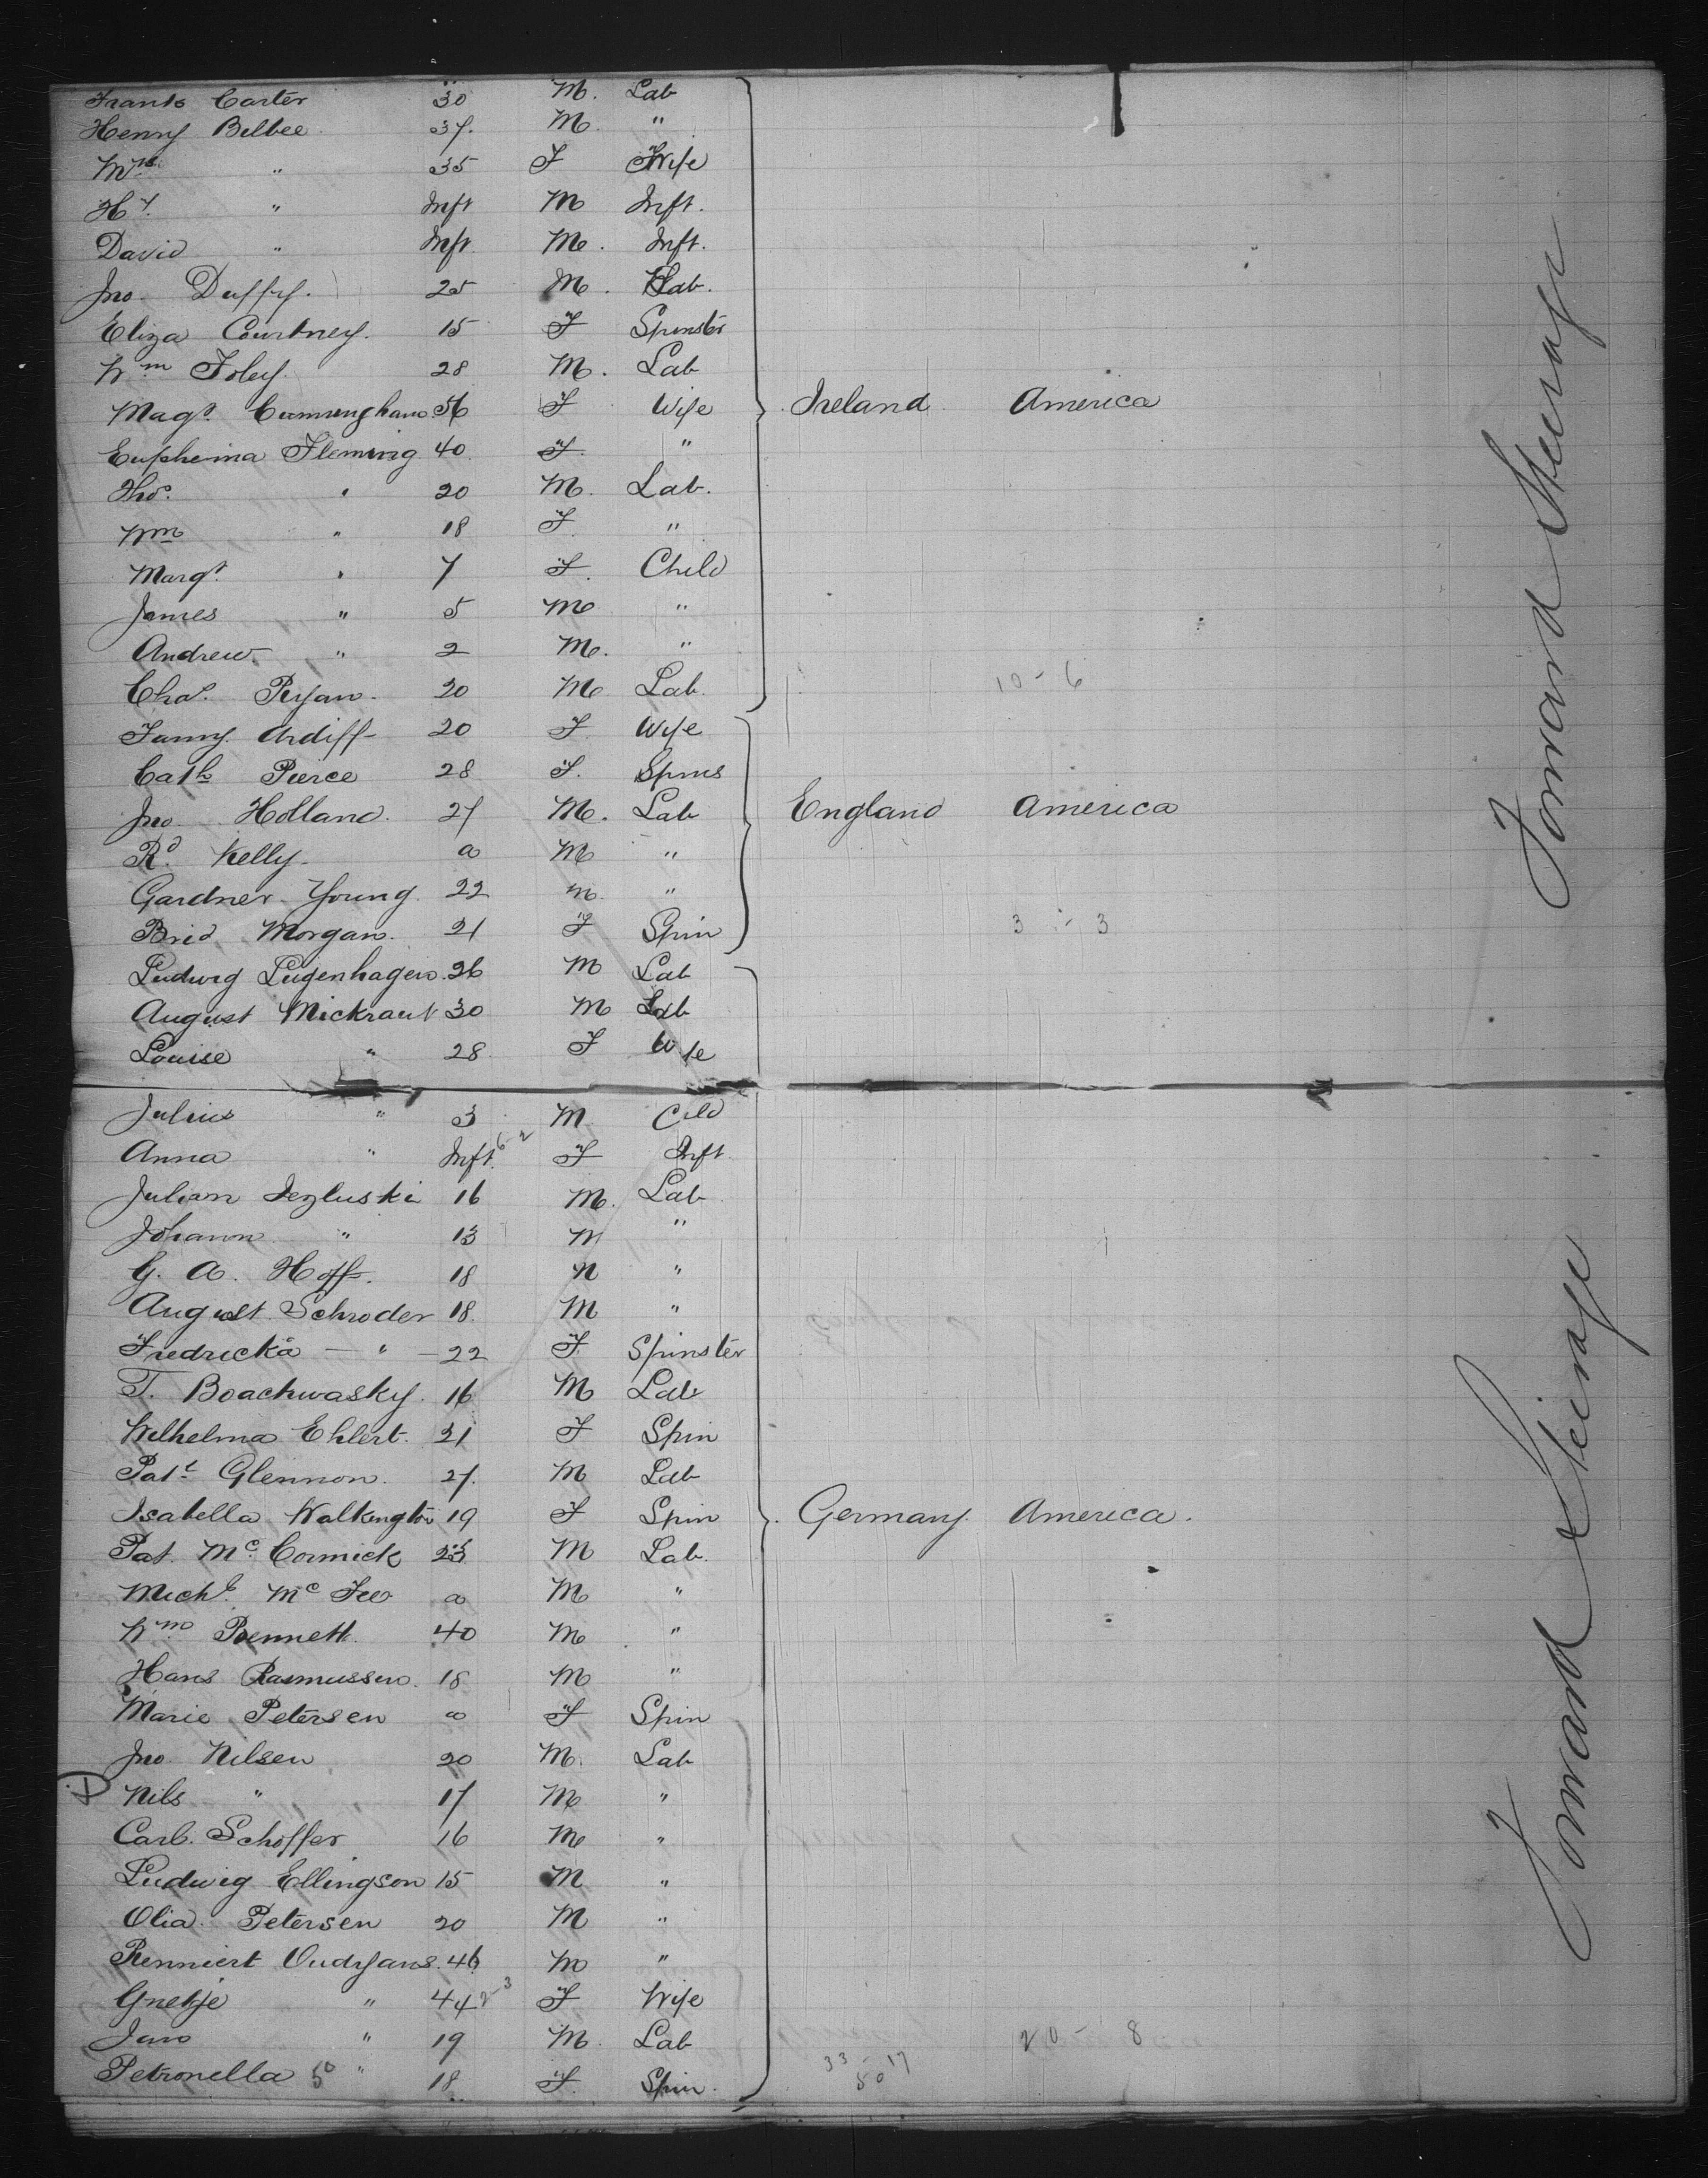 Frank Carter 30 M. Lab
Henry Belbee 37. M. "
Mrs. " 35 F Wife
Hy. " Inft M Inft.
David " Inft M. Inft.
Jno. Duffy. 25 M. Lab.
Eliza Courtney. 15 F Spinster
Wm Foley. 28 M. Lab
Magt. Cunningham 56 F Wife Ireland America
Euphemia Fleming 40 F. "
Thos. " 20 M. Lab.
Wm " 18 F "
Margt. " 7 F. Child
James " 5 M "
Andrew " 2 M. "
Chas. Ryan. 20 M Lab. 10 - 6
Fanny Ardiff 20 F. Wife
Cath Pierce 28 F. Spins
Jno. Holland. 27 M. Lab England America
Rd. Kelly. a M "
Gardner Young 22 m. "
Brid Morgan. 21 F Spin 3 - 3
Ludwig Lugenhagen. 26 M Lab
August Mickraut 30 M Lab
Louise " 28 F Wfe
Julius " 3 M Cild
Anna " Inft. 6-2 F Inft
Julian Jezluski 16 M. Lab
Johann " 13 M "
G. A. Hoff. 18 M "
August Schroder 18. M "
Fredricka — " — 22 F. Spinster
T. Boachwasky. 16 M Lab
Wilhelma Ehlert. 21 F Spin
Patt Glennon. 27. M Lab
Isabella Walkington 19 F Spin Germany America.
Pat. McCormick 23 M Lab.
Michl. McFee a M "
Wm Bennett. 40 M "
Hans Rasmussen. 18 M "
Marie Petersen a F Spin
Jno. Nilsen 20 M. Lab
Nils " 17 M "
Carl. Schoffer 16 M "
Ludwig Ellingson 15 M "
Olia. Petersen 20 M "
Renniert Oudyans. 46 M "
Grietje " 44 2-3 F Wife
Jan " 19 M. Lab 20 - 8
Petronella 50 " 18 F. Spin. 33 - 17
50
Forward Steerage
Forward Steerage